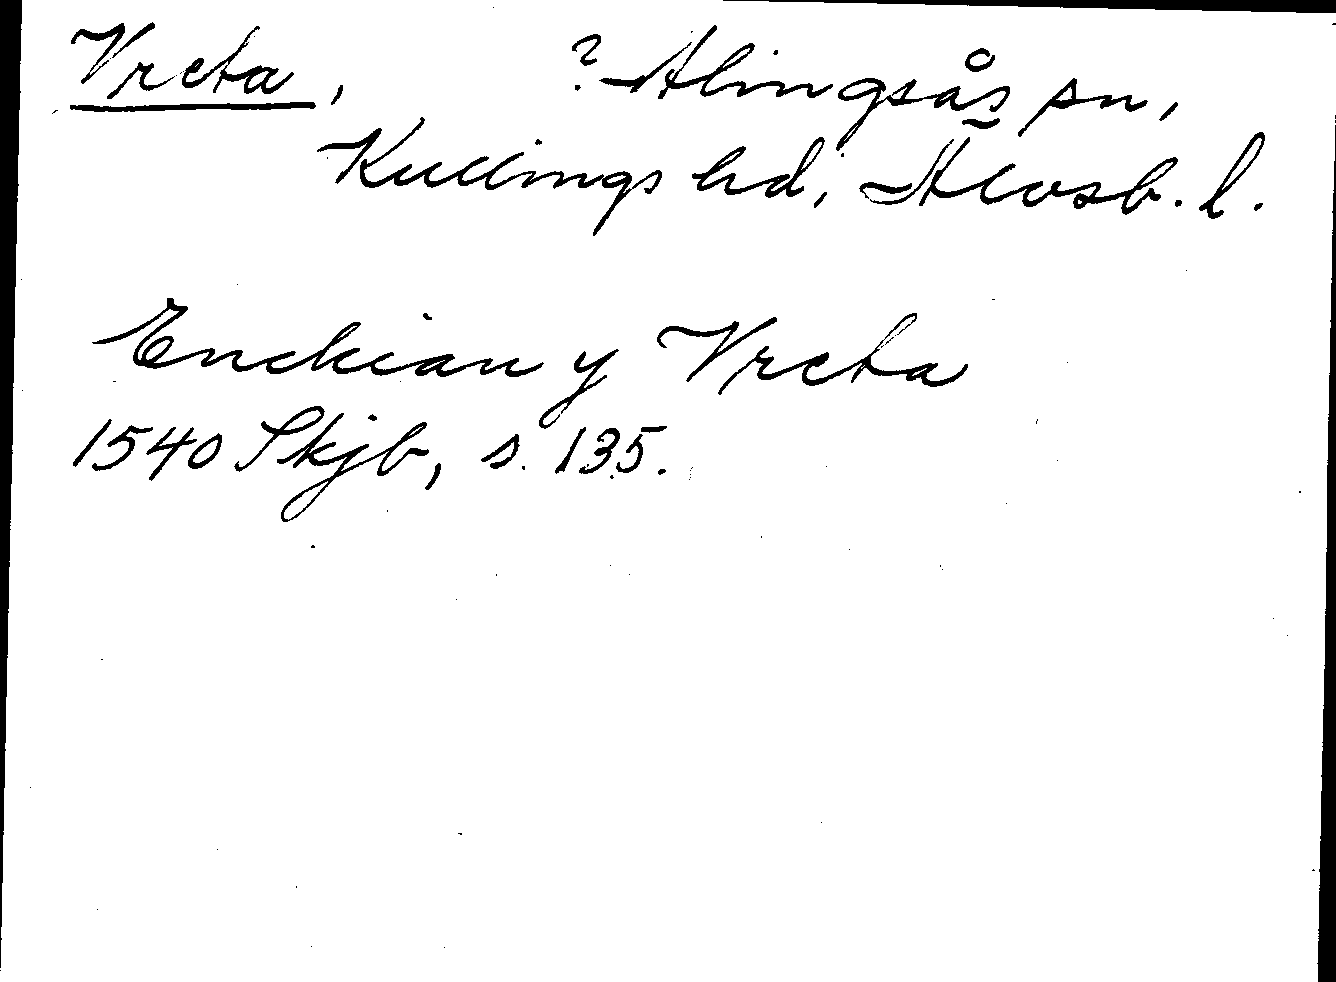 Vreta, ? Alingsås sn,
Kullings hd, Älvsb. l.
Enckian y Vreta
1540 Skjb, s. 135.